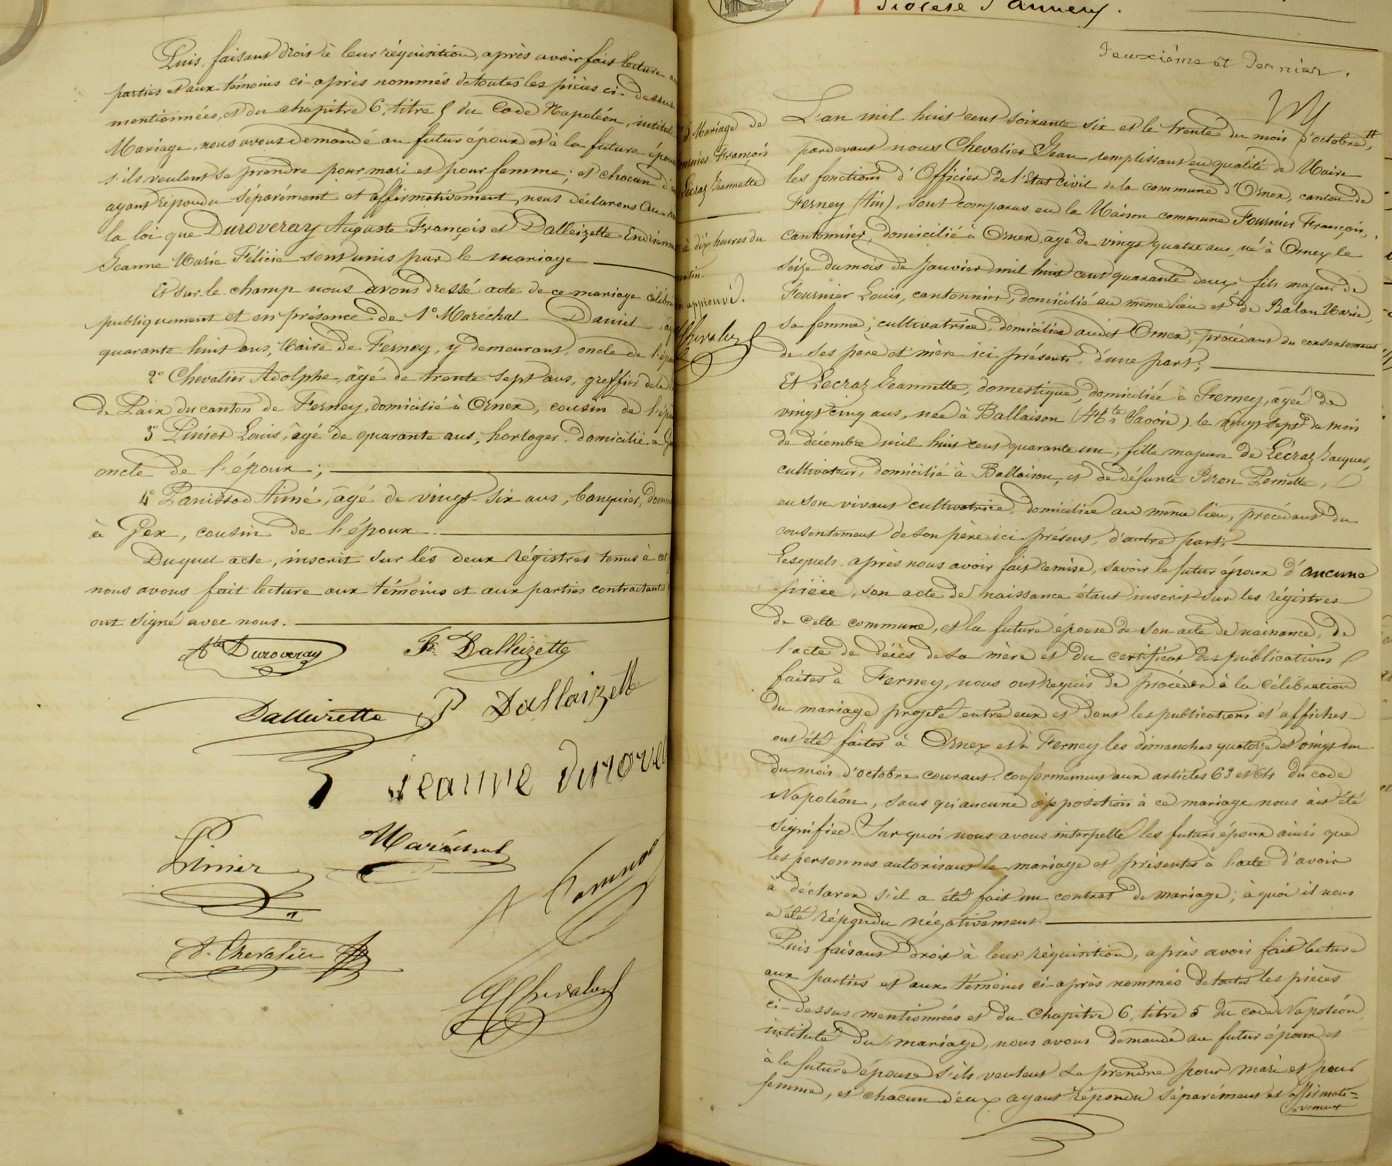 Puis, faisant droit à leur réquisition, après avoir fait lecture aux
parties et aux témoins ci-après nommés de toutes les pièces ci-dessus
mentionnées, et du chapitre 6, titre 5 du Code Napoléon, intitulé
Mariage, nous avons demandé au futur époux et à la future épouse
s'ils veulent se prendre pour mari et pour femme; et chacun d'eux
ayant répondu séparément et affirmativement, nous déclarons au nom
la loi que Duroveray Auguste François et Dalleizette
Jeanne Marie Félicie sont unis par le mariage
Et sur le champ nous avons dressé acte de ce mariage célébré
publiquement et en présence de 1° Maréchal Daniel, âgé
quarante huit ans, Maire de Ferney, y demeurant, oncle de l'époux
2° Chevalier Adolphe, âgé de trente sept ans, greffier de la
de Paix du canton de Ferney, domicilié à Ornex, cousin de l'époux
3° Pinier Louis, âgé de quarante ans, horloger, domicilié à
oncle de l'époux;
4° Panissod Aimé, âgé de vingt six ans, banquier,
à Gex, cousin de l'époux.
Duquel acte, inscrit sur les deux régistres tenus à cet
nous avons fait lecture aux témoins et aux parties contractantes
ont signé avec nous.
Duroveray Dalleizette
Dalleizette Dallaizette
jeanne durove
Pinier Maréchal
A. Chevalier
Chevalier
Diocèse d'Annecy.
Deuxième et dernier.
Mariage de
François
Jeannette
à dix heures du
matin
approuvé.
Chevalier
L'an mil huit cent soixante six et le trente du mois d'octobre,
pardevant nous Chevalier Jean, remplissant en qualité de Maire
les fonctions d'Officier de l'Etat civil de la commune d'Ornex, canton de
Ferney (Ain), sont comparus en la Maison commune Fournier François,
cantonnier, domicilié à Ornex, âgé de vingt quatre ans, né à Ornex le
seize du mois de Janvier mil huit cent quarante deux, fils majeur de
Fournier Louis, cantonnier, domicilié au même lieu et de Balan Marie,
sa femme, cultivatrice, domiciliée audit Ornex, procédant du consentement
de ses père et mère ici présents d'une part;
Et Lecraz Jeannette, domestique, domiciliée à Ferney, âgée de
vingt cinq ans, née à Ballaison (Hte Savoie) le vingt sept du mois
de décembre mil huit cent quarante un, fille majeure de Lecraz Jacques,
cultivateur, domicilié à Ballaison, et de défunte Bron Pernette,
en son vivant cultivatrice, domiciliée au même lieu, procédant du
consentement de son père ici présent, d'autre part.
Lesquels après nous avoir fait remise, savoir le futur époux d'aucune
pièce, son acte de naissance étant inscrit sur les régistres
de cette commune, et la future épouse de son acte de naissance, de
l'acte de décès de sa mère et du certificat des publications
faites à Ferney, nous ont requis de procéder à la célébration
du mariage projeté entre eux et dont les publications et affiches
ont été faites à Ornex et à Ferney les dimanches quatorze et vingt un
du mois d'octobre courant, conformément aux articles 63 et 64 du code
Napoléon, sans qu'aucune opposition à ce mariage nous ait été
signifiée. Sur quoi nous avons interpellé les futurs époux ainsi que
les personnes autorisant le mariage et présentes à l'acte d'avoir
à déclarer s'il a été fait un contrat de mariage; à quoi il nous
a été répondu négativement.
Puis faisant droit à leur réquisition, après avoir fait lecture
aux parties et aux témoins ci-après nommés de toutes les pièces
ci-dessus mentionnées et du Chapitre 6, titre 5 du code Napoléon
intitulé Du mariage, nous avons demandé au futur époux et
à la future épouse s'ils veulent se prendre pour mari et pour
femme, et chacun d'eux ayant répondu séparément et affirmati=
vement